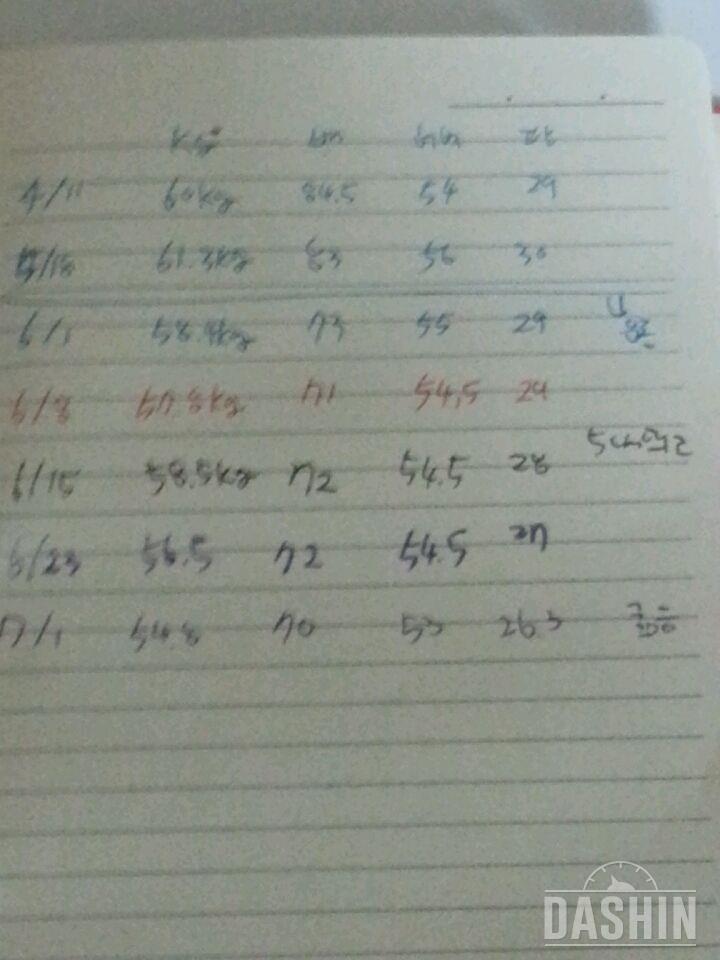 kg
4/11 60kg 84.5 54 29
5/18 61.3kg 83 56 30
6/1 58.8kg 73 55 29
6/8 57.8kg 71 54.5 29
6/15 58.5kg 72 54.5 28
6/23 56.5 72 54.5 27
7/1 54.8 70 53 26.5
DASHIN